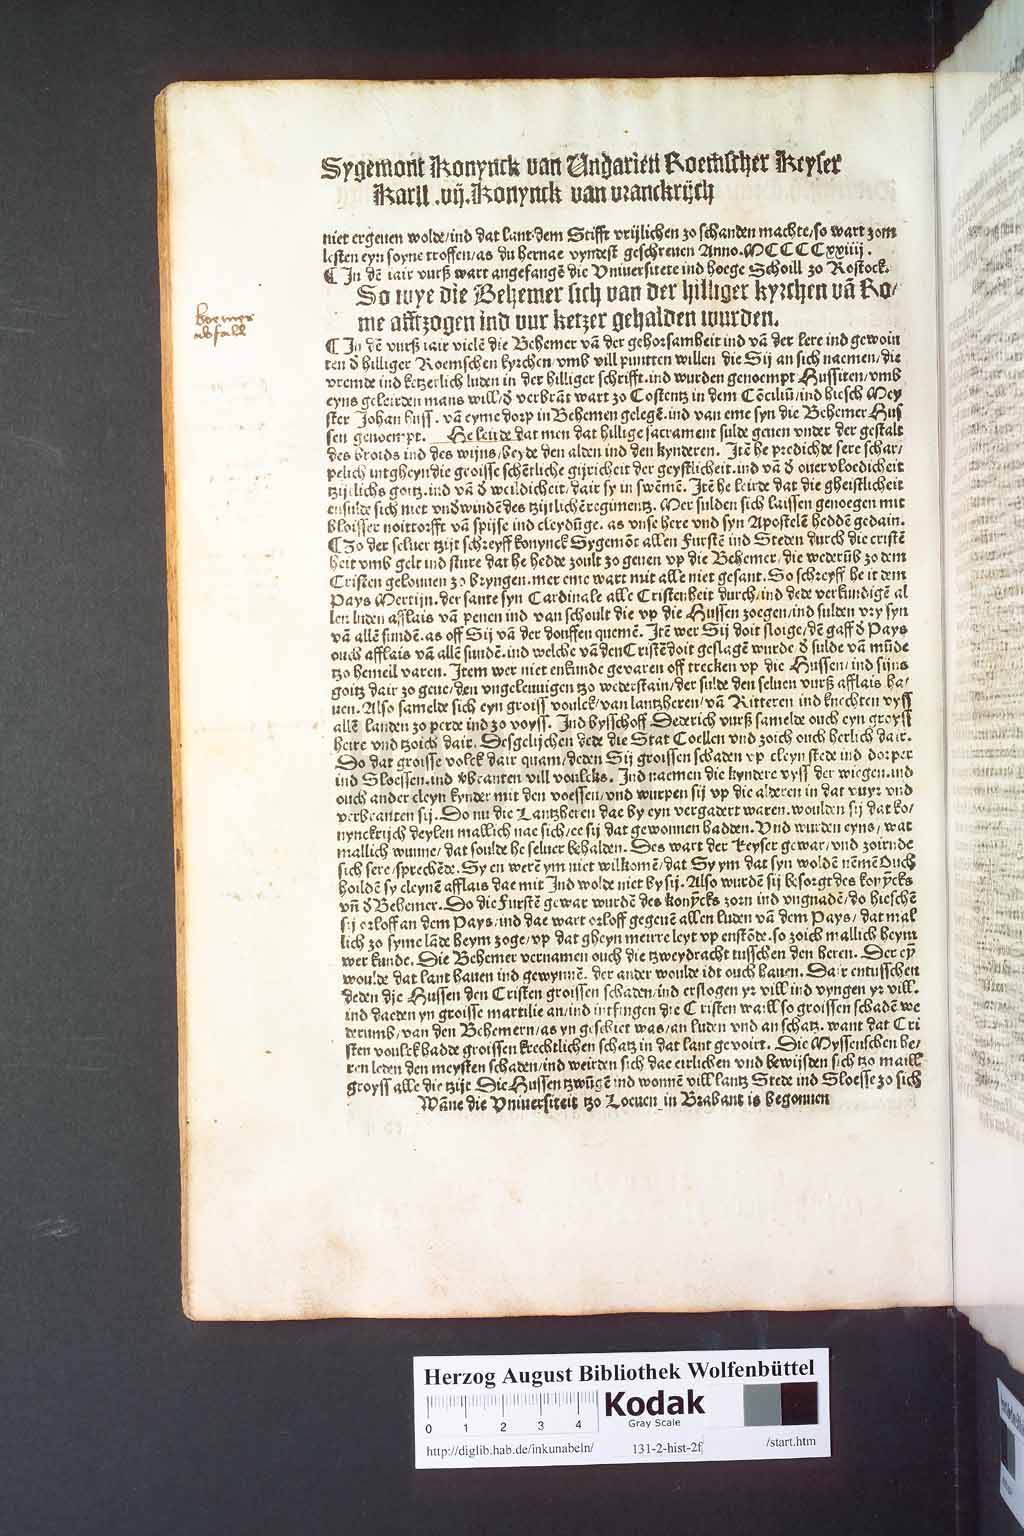 Sygemont Konynck van Ungarien Roemscher Keyser
Karll .vij. Konynck van vranckrijch
niet ergeuen wolde/ind dat lant dem Stifft vrijlichen zo schanden machte/so wart zom
lesten eyn soyne troffen/as du hernae vyndest geschreuen Anno.MCCCCxxiiij.
¶ In dē iair vurß wart angefangē die Vniuersitete ind hoege Schoill zo Rostock.
So wye die Behemer sich van der hilliger kyrchen vā Ro/
me afftzogen ind vur ketzer gehalden wurden.
boemer
abfall
¶ In dē vurß iair vielē die Behemer vā der gehorsamheit ind vā der lere ind gewoin
ten d̄ hilliger Roemschen kyrchen/vmb vill puntten willen die Sij an sich naemen/die
vremde ind ketzerlich luden in der hilliger schrifft.ind wurden genoempt Hussiten/vmb
eyns geleirden mans will/d̄ verbrāt wart zo Costentz in dem Cōciliū/ind hiesch Mey
ster Johan huss. vā eyme dorp in Behemen gelegē.ind van eme syn die Behemer Hus
sen genoempt. He leirde dat men dat hillige sacrament sulde geuen vnder der gestalt
des broids ind des wijns/beyde den alden ind den kynderen. Itē he predichde sere schar/
pelich intgheyn die groisse schētliche gijricheit der geystlicheit.ind vā d̄ ouervloedicheit
tzijtlichs goitz.ind vā d̄ weildicheit/dair sy in swēmē. Itē he leirde dat die gheistlicheit
ensulde sich niet vndwindē des tzijtlichē regimentz. Mer sulden sich laissen genoegen mit
bloisser noittorfft vā spijse ind cleydūge. as vnse here vnd syn Apostelē heddē gedain.
¶ Zo der seluer tzijt schreyff konynck Sygemōt allen Furstē ind Steden durch die cristē
heit vmb gelt ind sture dat he hedde zoult zo geuen vp die Behemer/die wederūb zo dem
Cristen gelouuen zo bryngen.mer eme wart mit alle niet gesant. So schreyff he it dem
Pays Mertijn. der sante syn Cardinale alle Cristenheit durch/ind dede verkundigē al
len luden afflais vā penen ind van schoult die vp die Hussen zoegen/ind sulden vry syn
vā allē sundē.as off Sij vā der douffen quemē. Itē wer Sij doit sloige/dē gaff d̄ Pays
ouch afflais vā allē sundē.ind welche vā den Cristē doit geslagē wurde d̄ sulde vā mūde
tzo hemeil varen. Item wer niet enkunde gevaren off trecken vp die Hussen/ind sijns
goitz dair zo geue/den vngeleuuigen tzo wederstain/der sulde den seluen vurß afflais ha/
uen. Also samelde sich eyn groiss voulck/van lantzheren/vā Ritteren ind knechten vyss
allē landen zo perde ind zo voyss. Ind bysschoff Dederich vurß samelde ouch eyn groyss
heire vnd tzoich dair. Desgelijchen dede die Stat Coellen vnd zoich ouch herlich dair.
Do dat groisse volck dair quam/deden Sij groissen schaden vp cleyn stede ind dorper
ind Sloessen.ind v̄branten vill voulcks. Ind naemen die kyndere vyss der wiegen.ind
ouch ander cleyn kynder mit den voessen/vnd wurpen sij vp die alderen in dat vuyr vnd
verbranten sij. Do nu die Lantzheren dae by eyn vergadert waren.woulden sij dat ko/
nynckrijch deylen mallich nae sich/ee sij dat gewonnen hadden. Vnd wurden eyns/wat
mallich wunne/dat soulde he seluer behalden. Des wart der Keyser gewar/vnd zoirnde
sich sere/sprechēde. Sy en werē ym niet wilkomē/dat Sy ym dat syn woldē nēmē Ouch
hoildē sy cleynē afflais dae mit Ind wolde niet by sij. Also wurdē sij besorgt des konȳcks
vn̄ d̄ Behemer. Do die Furstē gewar wurdē des konȳcks zorn ind vngnadē/do hieschē
sij orloff an dem Pays/ind dae wart orloff gegeuē allen luden vā dem Pays/dat mal
lich zo syme lāde heym zoge/vp dat gheyn meirre leyt vp enstōde.so zoich mallich heym
wer kunde. Die Behemer vernamen ouch die tzweydracht tusschen den heren. Der eȳ
woulde dat lant hauen ind gewynnē. der ander woulde idt ouch hauen. Dair entusschen
deden die Hussen den Cristen groissen schaden/ind erslogen yr vill ind vyngen yr vill.
ind daeden yn groisse martilie an/ind intfingen die Cristen waill so groissen schadē we
derumb/van den Behemern/as yn geschiet was/an luden vnd an schatz. want dat Cri
sten voulck hadde groissen krechtlichen schatz in dat lant gevoirt. Die Myssenschen he/
ren leden den meysten schaden/ind weirden sich dae eirlichen vnd bewijsden sich tzo maill
groyss alle die tzijt Die Hussen tzwūgē ind wonnē vill lantz Stede ind Sloesse zo sich
Wāne die Vniuersiteit tzo Loeuen in Brabant is begonnen
Herzog August Bibliothek Wolfenbüttel
Kodak
Gray Scale
0 1 2 3 4
http://diglib.hab.de/inkunabeln/ 131-2-hist-2f /start.htm